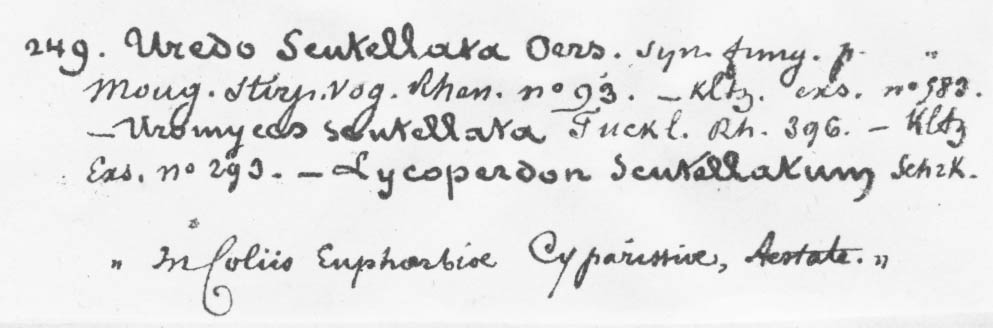 249. Uredo Scutellata Pers. syn. fung. p. "
Moug. Stirp. Vog. Rhen. nº 93. – Kltz. exs. nº 583.
– Uromyces scutellata Fuckl. Rh. 396. – Kltz
Exs. nº 293. – Lycoperdon Scutellatum Schrk.
" In foliis Euphorbiæ Cyparissiæ, Aestate. "